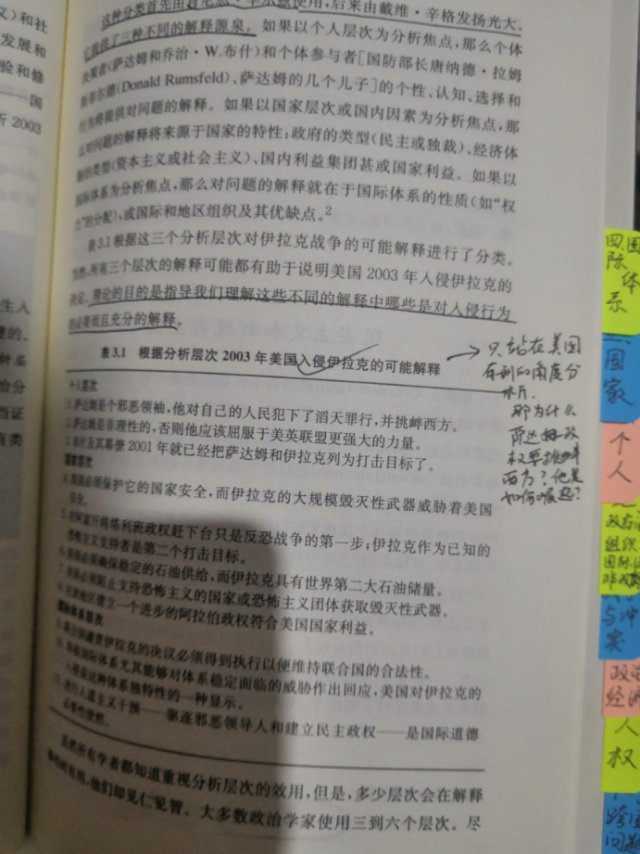 这种分类首先由肯尼思·华尔兹使用，后来由戴维·辛格发扬光大。
它提供了三种不同的解释源泉。如果以个人层次为分析焦点，那么个体
决策者（萨达姆和乔治·W.布什）和个体参与者［国防部长唐纳德·拉姆
斯菲尔德（Donald Rumsfeld）、萨达姆的几个儿子］的个性、认知、选择和
行为将提供对问题的解释。如果以国家层次或国内因素为分析焦点，那
么对问题的解释将来源于国家的特性：政府的类型（民主或独裁）、经济体
制的类型（资本主义或社会主义）、国内利益集团甚或国家利益。如果以
国际体系为分析焦点，那么对问题的解释就在于国际体系的性质（如“权
力”的分配），或国际和地区组织及其优缺点。2
表3.1根据这三个分析层次对伊拉克战争的可能解释进行了分类。
当然，所有三个层次的解释可能都有助于说明美国2003年入侵伊拉克的
决定。理论的目的是指导我们理解这些不同的解释中哪些是对入侵行为
的必要而且充分的解释。
表3.1 根据分析层次2003年美国入侵伊拉克的可能解释
个人层次
1.萨达姆是个邪恶领袖，他对自己的人民犯下了滔天罪行，并挑衅西方。
2.萨达姆是非理性的，否则他应该屈服于美英联盟更强大的力量。
3.布什及其幕僚2001年就已经把萨达姆和伊拉克列为打击目标了。
国家层次
美国必须保护它的国家安全，而伊拉克的大规模毁灭性武器威胁着美国
安全。
在阿富汗将塔利班政权赶下台只是反恐战争的第一步；伊拉克作为已知的
恐怖主义支持者是第二个打击目标。
美国必须确保稳定的石油供给，而伊拉克具有世界第二大石油储量。
美国必须阻止支持恐怖主义的国家或恐怖主义团体获取毁灭性武器。
在该地区建立一个进步的阿拉伯政权符合美国国家利益。
国际体系层次
联合国谴责伊拉克的决议必须得到执行以便维持联合国的合法性。
体系尤其能够对体系稳定面临的威胁作出回应，美国对伊拉克的
入侵是这种体系独特性的一种显示。
进行人道主义干预——驱逐邪恶领导人和建立民主政权——是国际道德
虽然所有学者都知道重视分析层次的效用，但是，多少层次会在解释
他们却见仁见智。大多数政治学家使用三到六个层次。尽
只站在美国
有利的角度分
析。
那为什么
萨达姆政
权要挑衅
西方？他是
如何崛起？
四.国
际体
系
国
家
个
人
政府间
组织
国际法
与冲
突
政治
经济
人
权
跨国
问题